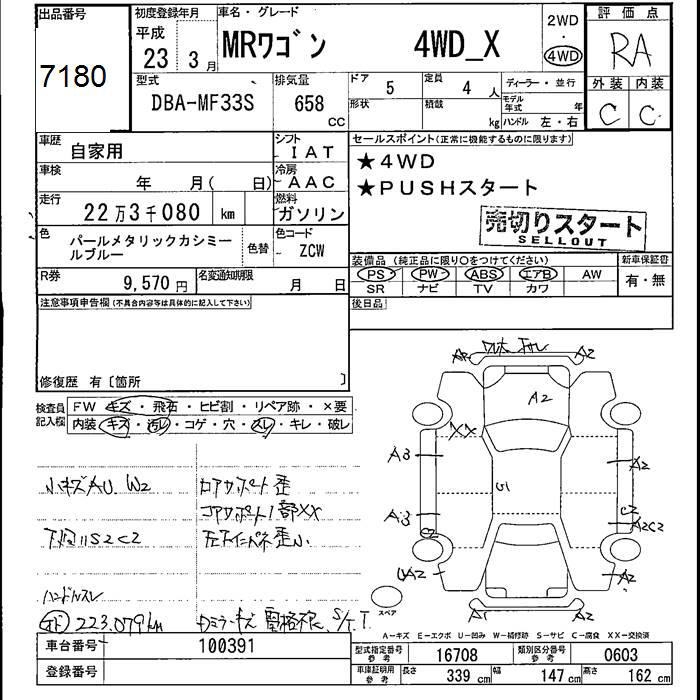 出品番号
7180
初度登録年月
平成
23年 3月
車名・グレード
MRワゴン 4WD_X
2WD
・
4WD
評価点
RA
型式
DBA-MF33S
排気量
658
CC
ドア 5
定員 4人
ディーラー・並行
形状
積載 kg
モデル年式 年
ハンドル 左・右
外装 内装
C C
車歴
自家用
シフト
IAT
セールスポイント(正常に機能するものに限ります)
★4WD
★PUSHスタート
車検
年 月( 日)
冷房
AAC
走行
22万3千080 km
燃料
ガソリン
売切りスタート
SELLOUT
色
パールメタリックカシミールブルー
色替
色コード
ZCW
装備品(純正品に限り〇をつけてください)
新車保証書
PS PW ABS エアB AW
SR ナビ TV カワ
有・無
R券
9,570円
名変通知期限
月 日
後日品
注意事項申告欄(不具合内容等は具体的に記入して下さい)
修復歴 有〔箇所 〕
検査員記入欄
FW キズ・飛石・ヒビ割・リペア跡・×要
内装 キズ・汚レ・コゲ・穴・スレ・キレ・破レ
小キズAU. W2
コアサポート歪
コアサポート1部XX
下廻りS2C2
ハンドルスレ
223.079km
A2
A2
XX
A3
A2
A3
A2C2
UA2
A2
A1
A2
スペア
A-キズ E-エクボ U-凹み W-補修跡 S-サビ C-腐食 XX-交換済
車台番号 100391
登録番号
型式指定番号参考 16708
類別区分番号参考 0603
車庫証明用参考 長さ 339 cm 幅 147 cm 高さ 162 cm